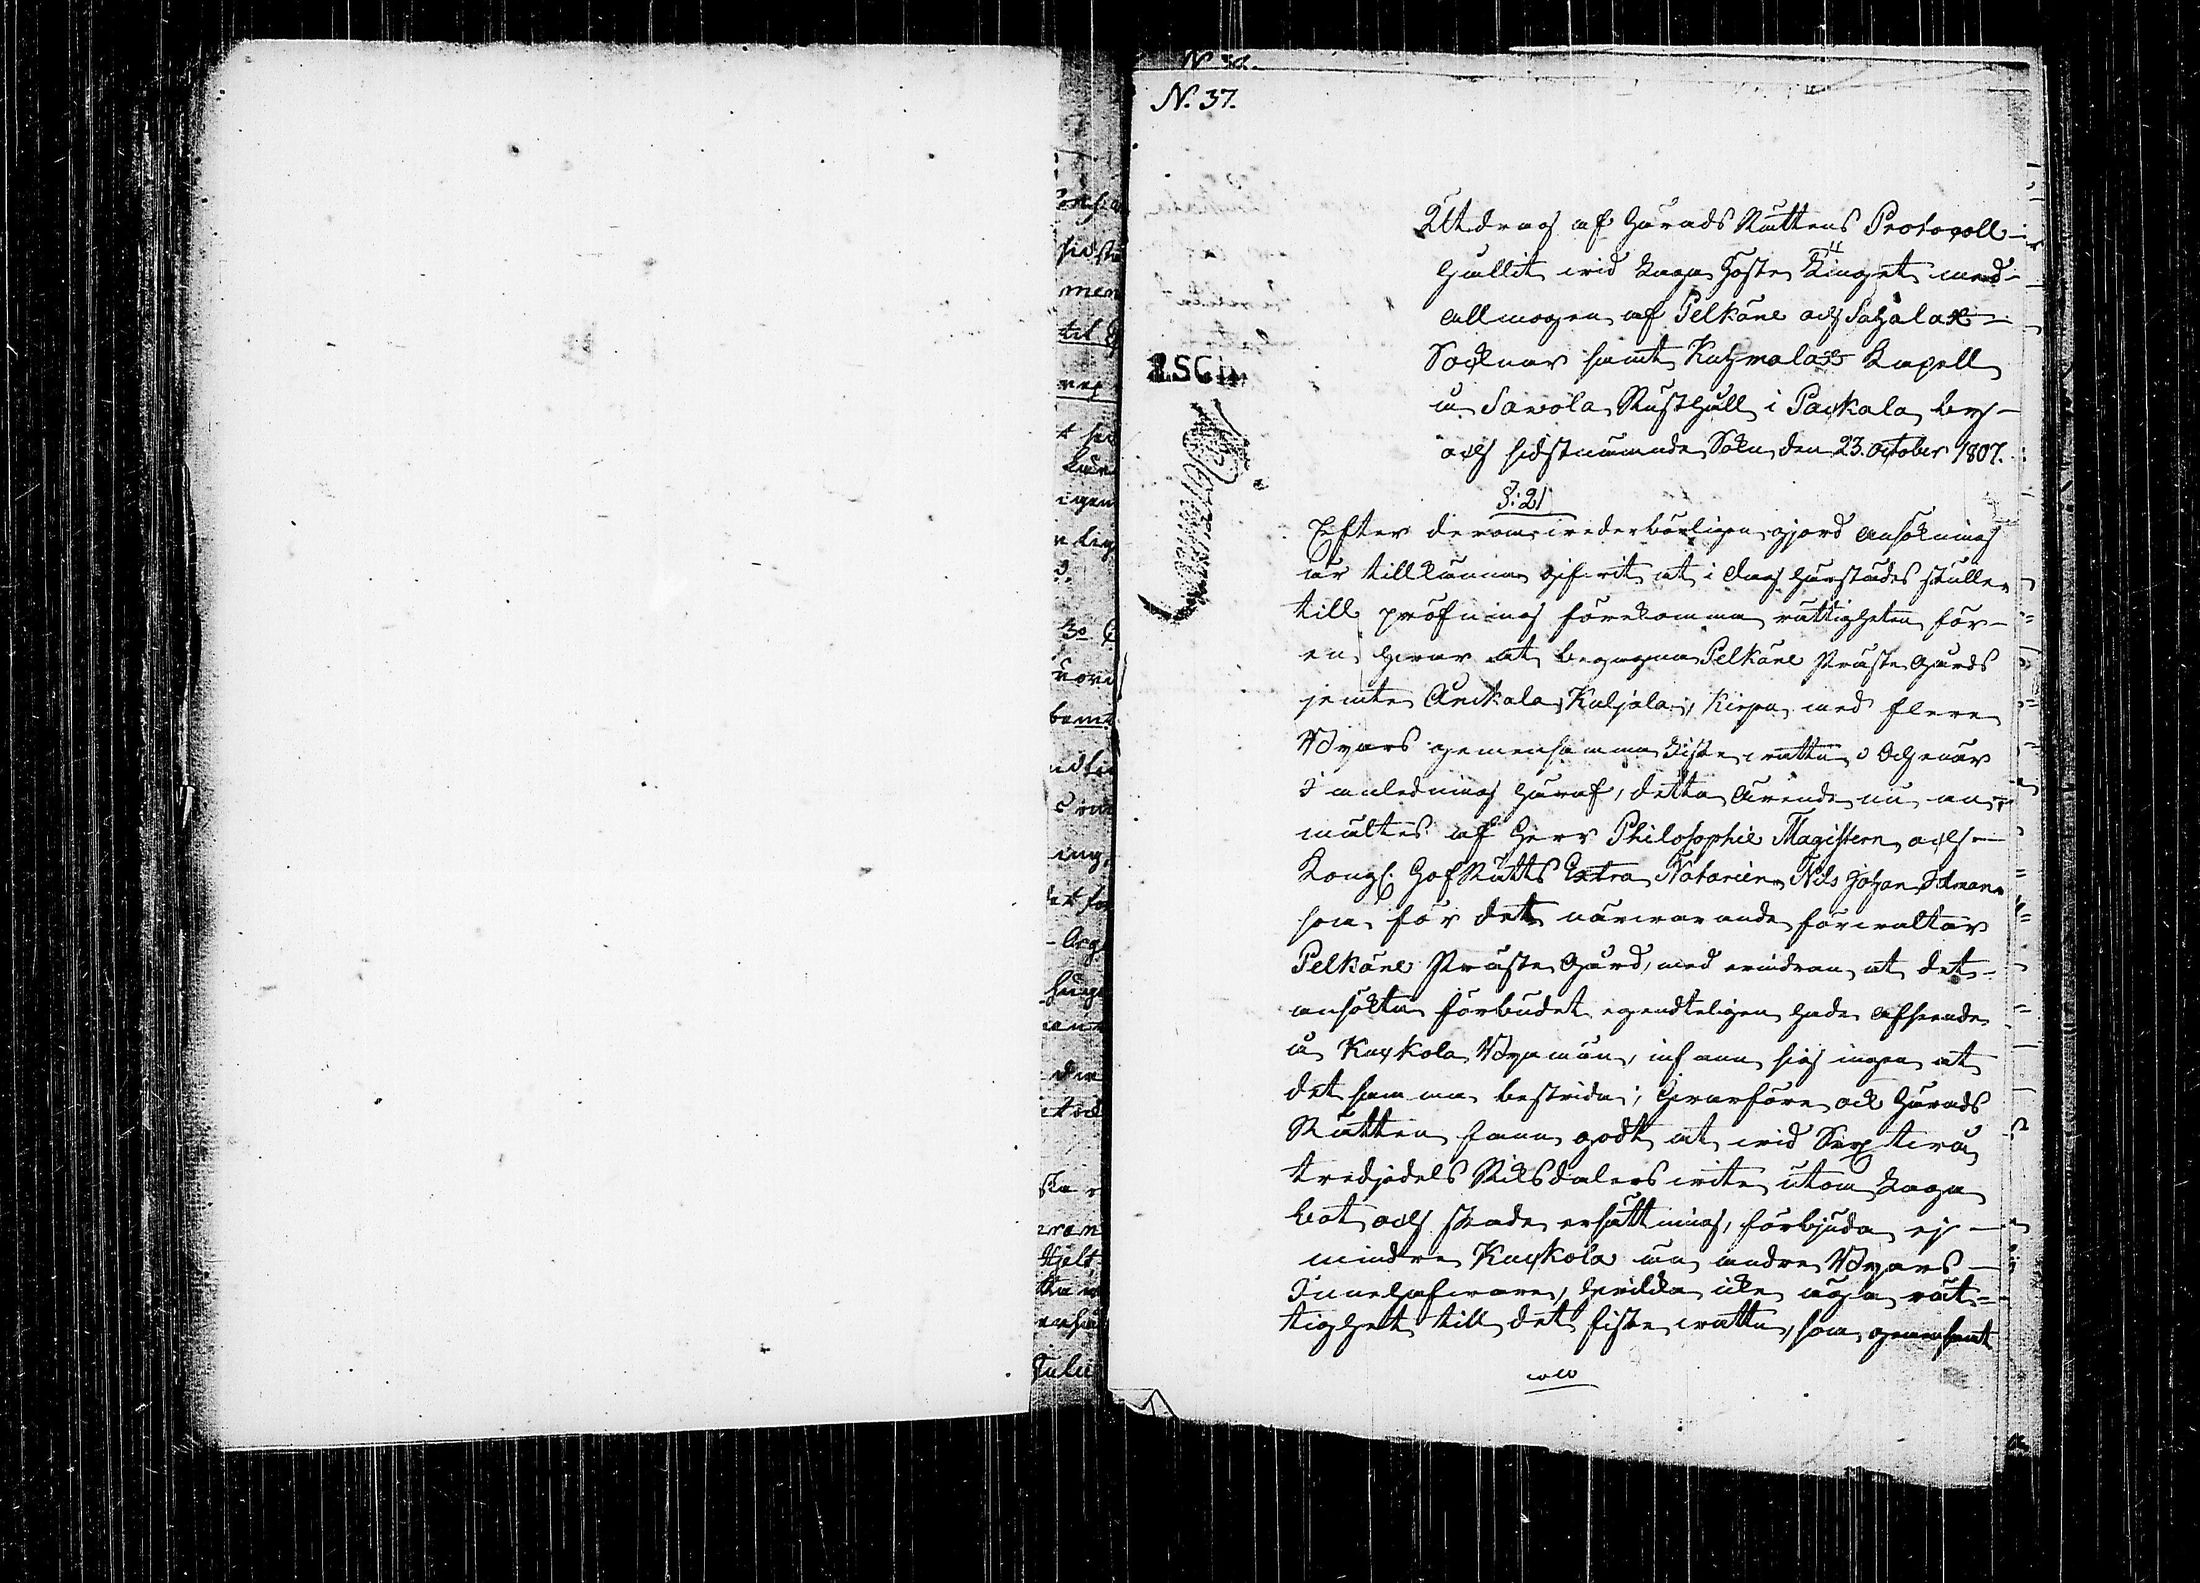 N. 37.
Utdrag af Härads Rättens Protocoll
hållit vid Laga Höste Tinget med
allmogen af Pelkäne och Sahalax
Socknar samt Kuhmalax Kapell
å Sawola Rusthåll i Packala by
och sidstnämnde Sokn den 23. October 1807.
§: 21
Efter derom vederbörligen gjord ansökning
är tillkänna gifvit at i dag härstädes skulle
till pröfning förekomma rättigheten för
en hvar at begagna Pelkäne Präste Gårds
jemte Anikala, Kuljala, Kirpu med flere
Byars gemensamma Fiske vatten; Och enär
I anledning häraf, detta ärende nu an-
mältes af Herr Philosophie Magistern och
Kongl. Hof Rätts Extra Notarien Nils Johan Idman
som för det närvarande förvaltar
Pelkäne Präste Gård, med erindran at det
ansökta förbudet egendteligen hade afseende
å Kuckola Byamän, infann sig ingen at
det samma bestrida; Hvarföre ock Härads
Rätten fann godt at vid Sex tivå
tredjedels Riksdalers vite utom Laga
bot och skade ersättning, förbjuda ej
mindre Kuckola än andre Byars
Innehafvare, hvilka icke äga rät-
tighet till det fiske vatten, som gemensamt